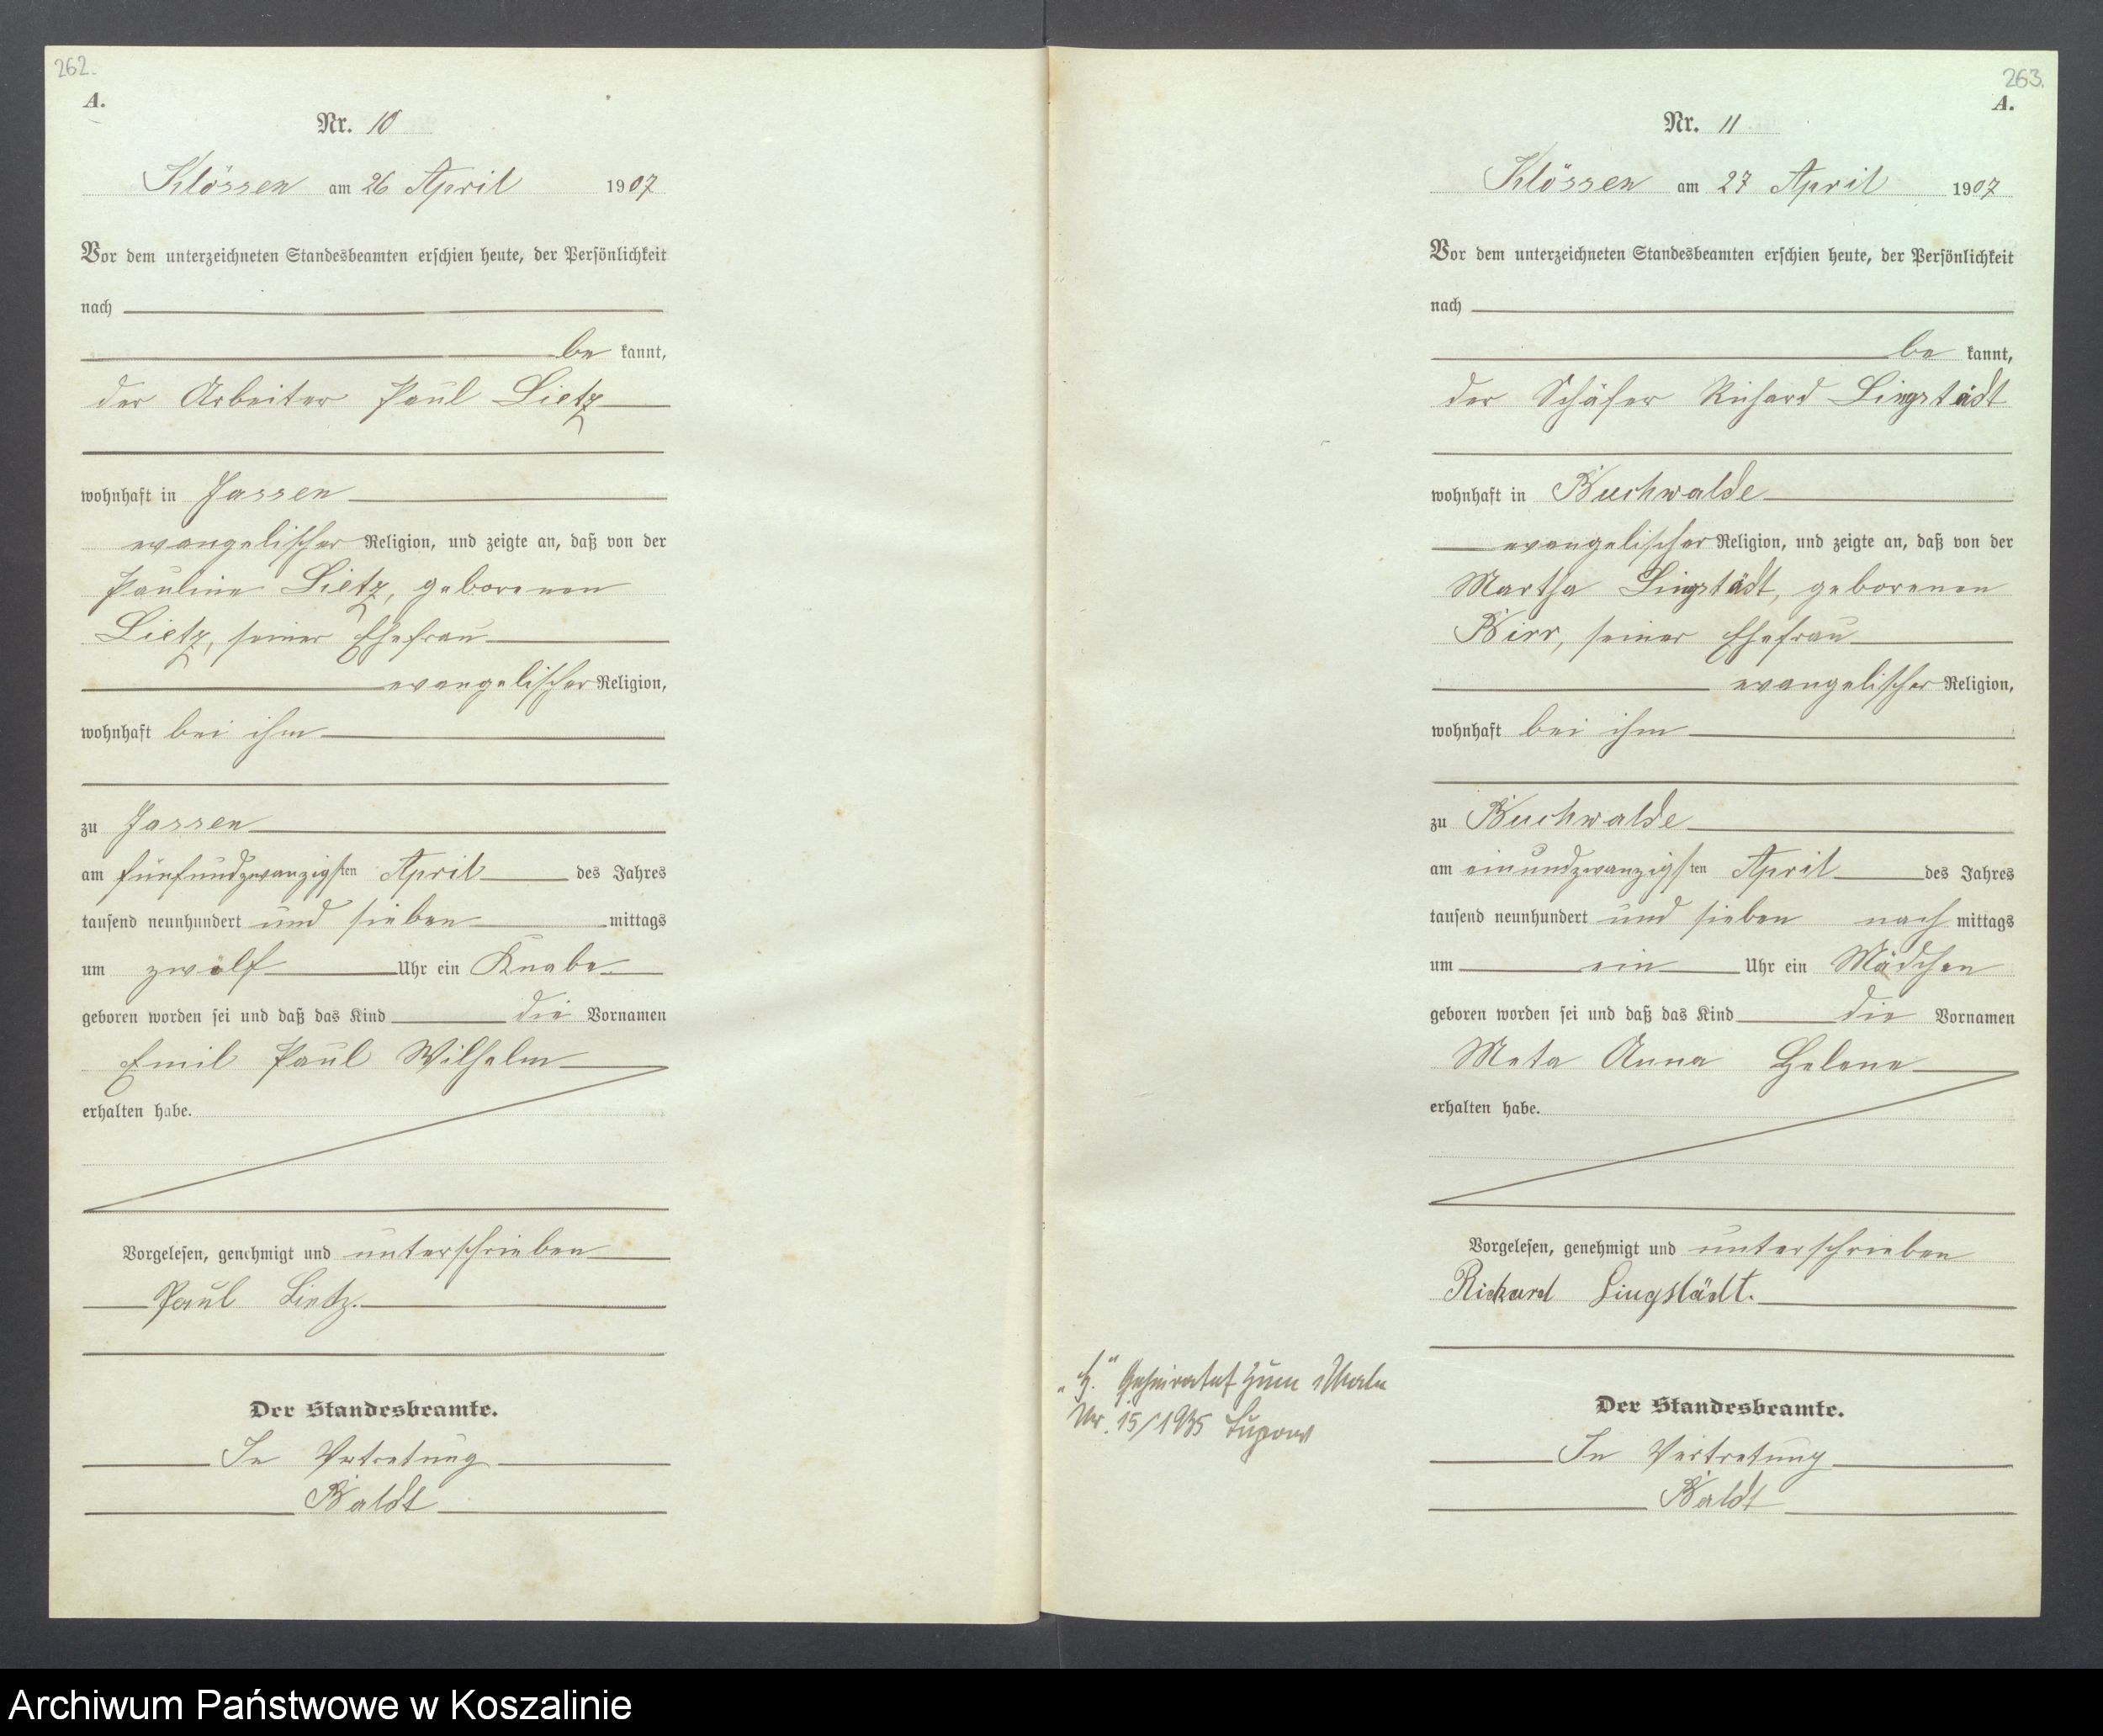 262.
A.
Nr. 10
Klössen am 26 April 1907
Vor dem unterzeichneten Standesbeamten erschien heute, der Persönlichkeit
nach
be kannt,
der Arbeiter Paul Lietz
wohnhaft in Jassen
evangelischer Religion, und zeigte an, daß von der
Pauline Lietz, geborenen
Lietz, seiner Ehefrau
evangelischer Religion,
wohnhaft bei ihm
zu Jassen
am fünfundzwanzigsten April des Jahres
tausend neunhundert und sieben mittags
um zwölf Uhr ein Knabe
geboren worden sei und daß das Kind die Vornamen
Emil Paul Wilhelm
erhalten habe.
Vorgelesen, genehmigt und unterschrieben
Paul Lietz.
Der Standesbeamte.
In Vertretung
Baldt
263.
A.
Nr. 11
Klössen am 27 April 1907
Vor dem unterzeichneten Standesbeamten erschien heute, der Persönlichkeit
nach
be kannt,
der Schäfer Richard Lingstädt
wohnhaft in Buchwalde
evangelischer Religion, und zeigte an, daß von der
Martha Lingstädt, geborenen
Birr, seiner Ehefrau
evangelischer Religion,
wohnhaft bei ihm
zu Buchwalde
am einundzwanzigsten April des Jahres
tausend neunhundert und sieben nach mittags
um ein Uhr ein Mädchen
geboren worden sei und daß das Kind die Vornamen
Meta Anna Helene
erhalten habe.
Vorgelesen, genehmigt und unterschrieben
Richard Lingstädt.
"H." Geheiratet zum 1 Male
Nr. 15/1935 Lupow
Der Standesbeamte.
In Vertretung
Baldt
Archiwum Państwowe w Koszalinie